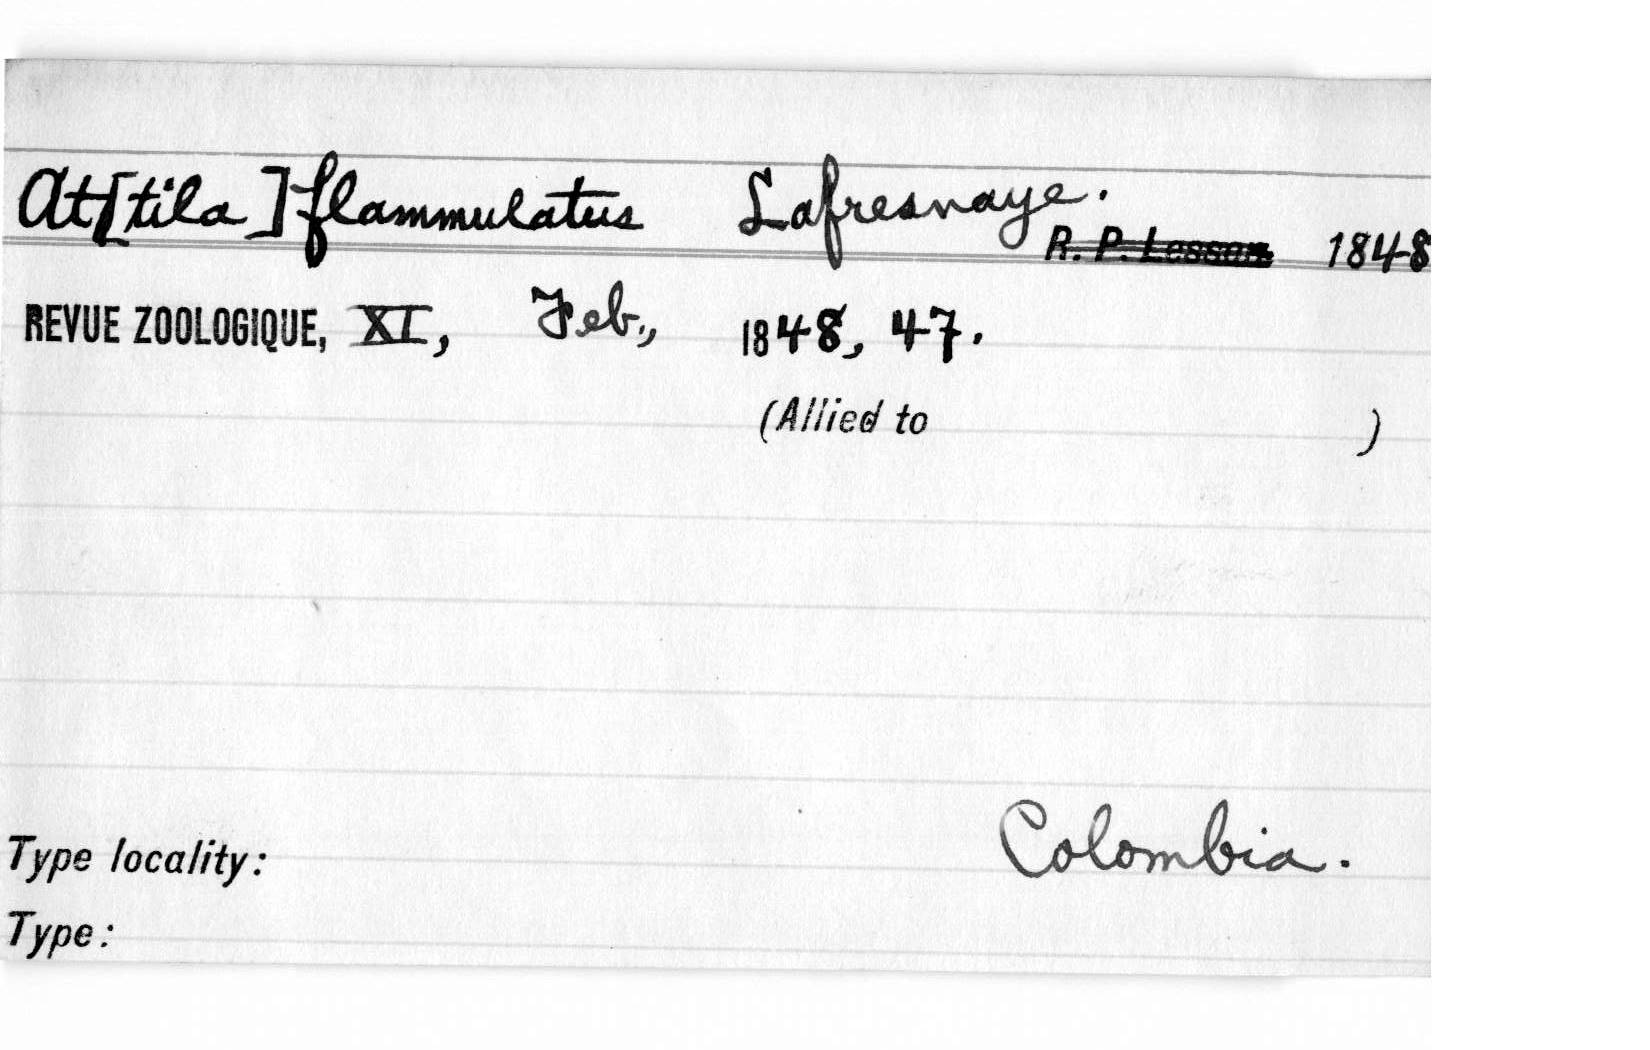 At[tila] flammulatus Lafresnaye.
R. P. Lesson 1848
REVUE ZOOLOGIQUE, XI, Feb., 1848, 47.
(Allied to )
Type locality: Colombia.
Type: